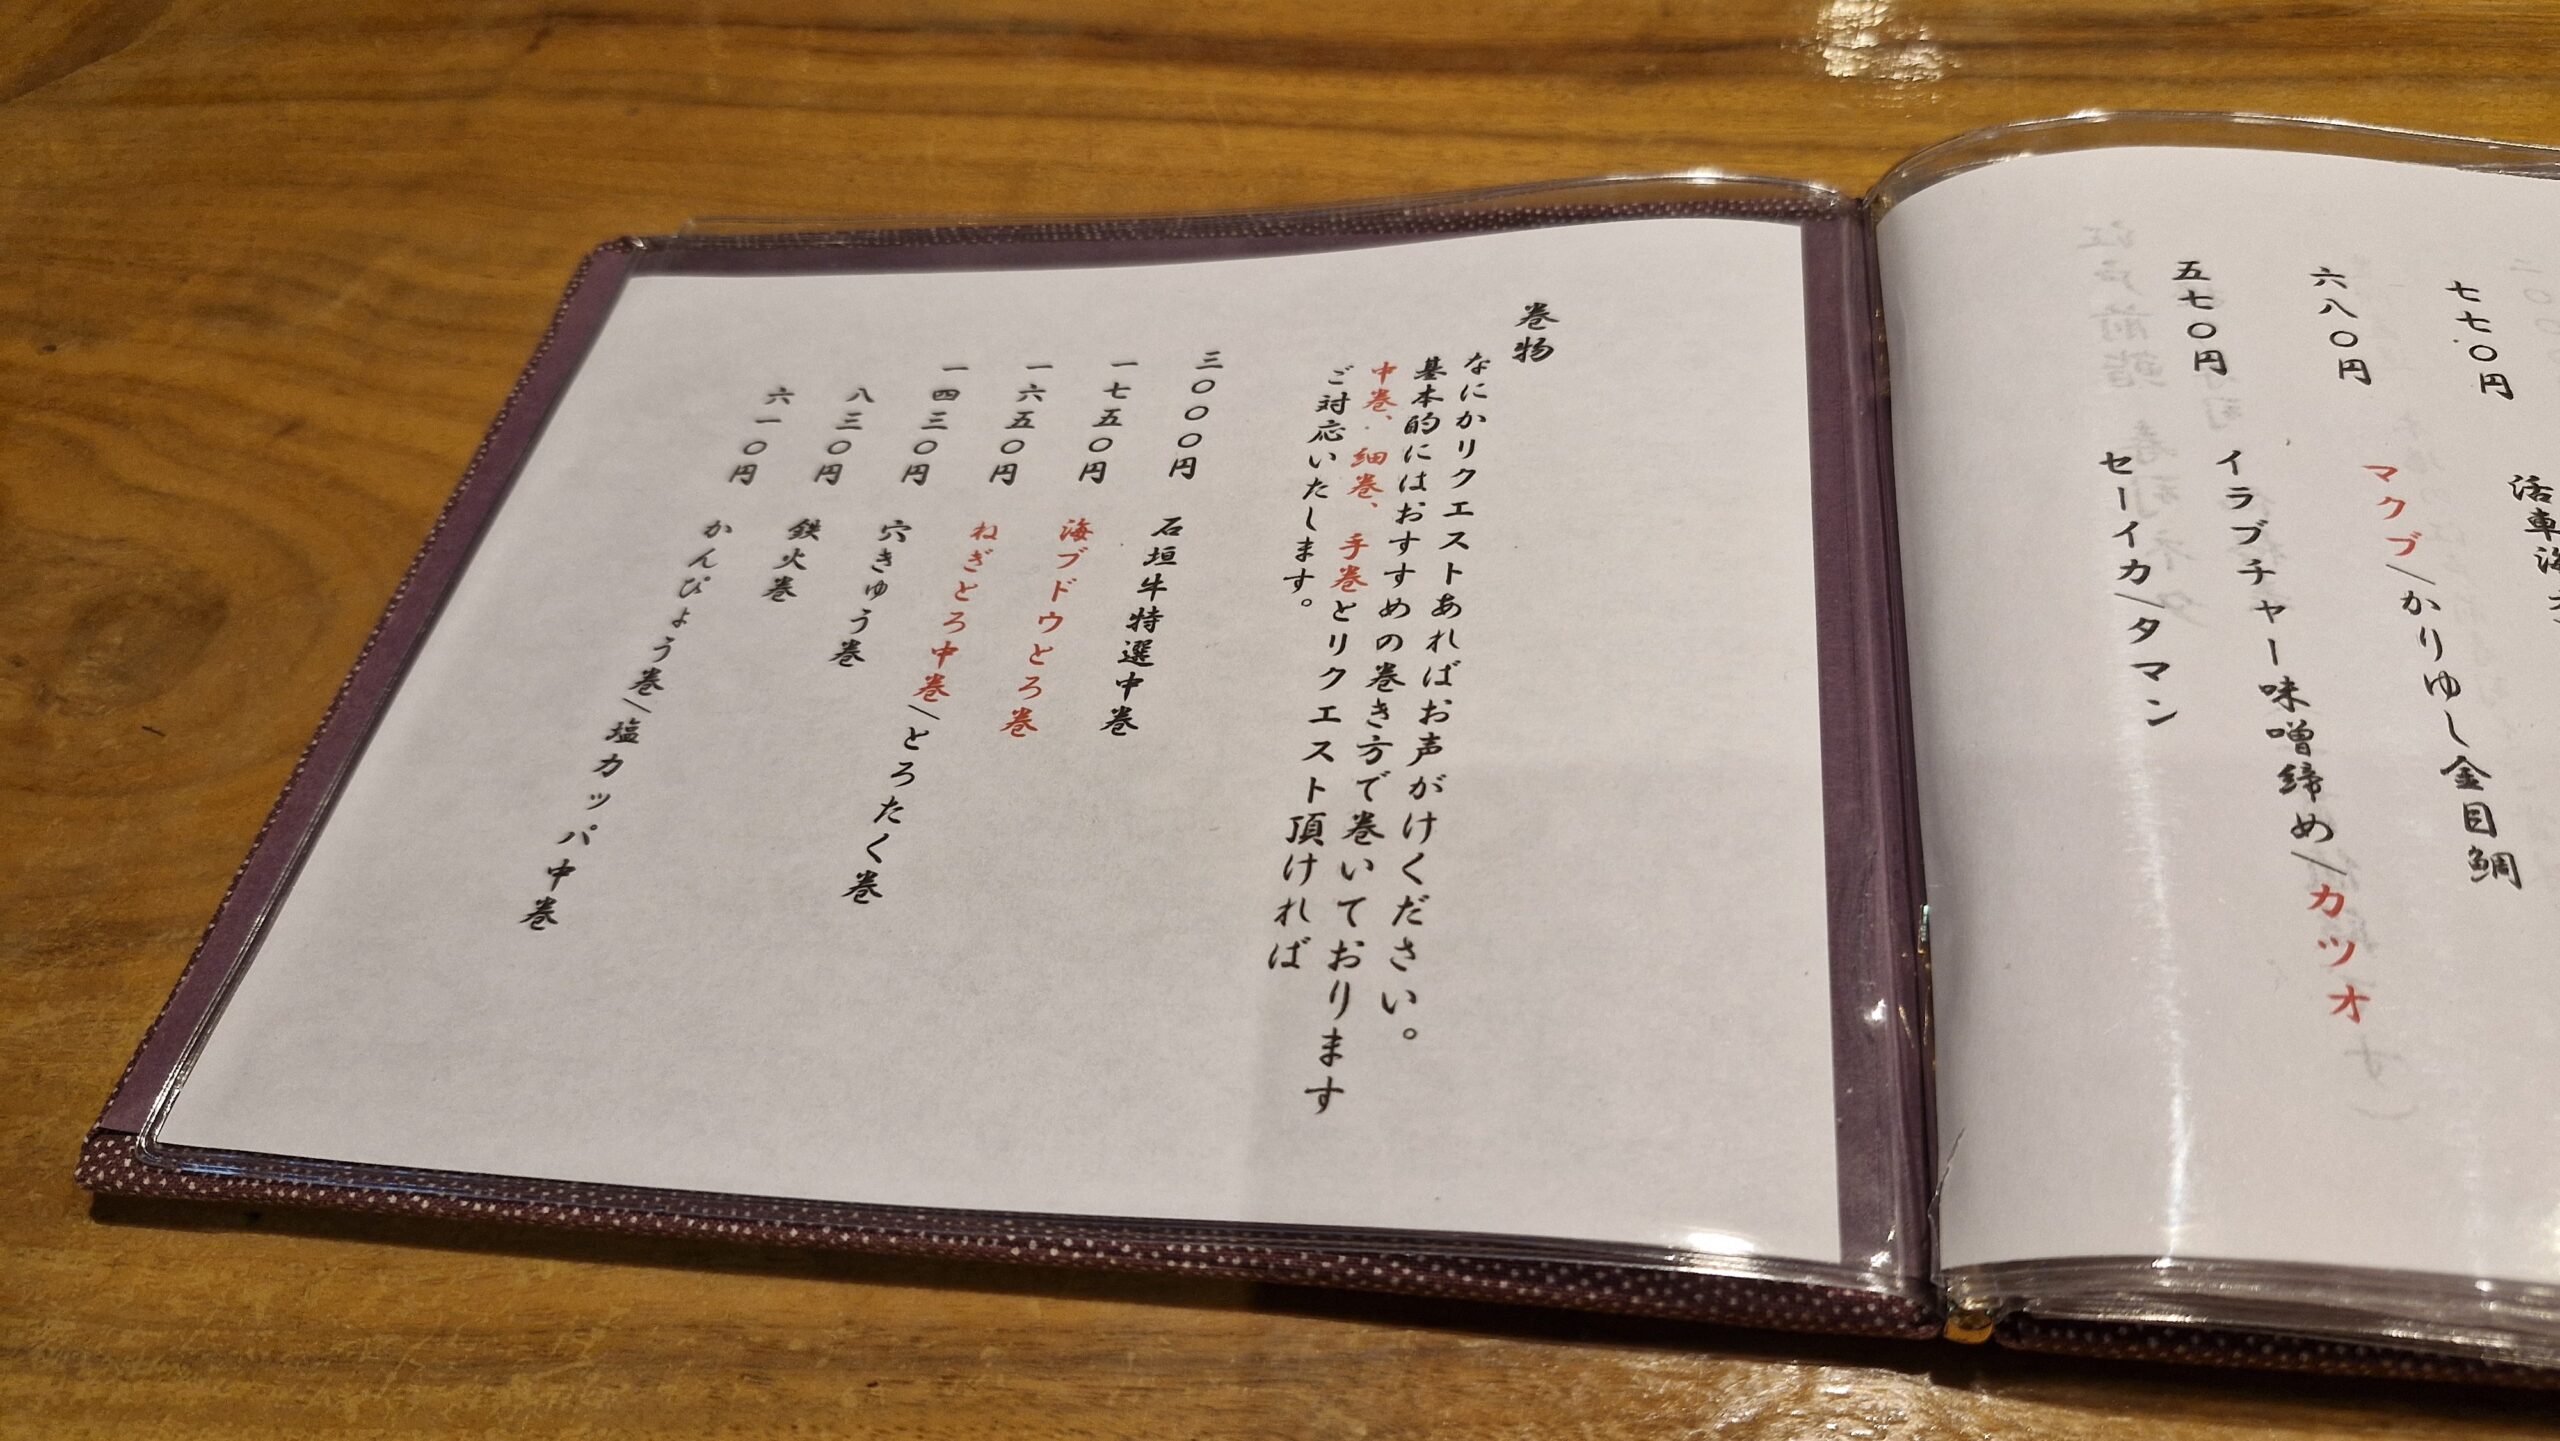 七七〇円 活車海
六八〇円 マクブ/かりゆし金目鯛
イラブチャー味噌締め/カツオ
五七〇円 セーイカ/タマン
巻物
なにかリクエストあればお声がけください。
基本的にはおすすめの巻き方で巻いております
中巻、細巻、手巻とリクエスト頂ければ
ご対応いたします。
三〇〇〇円 石垣牛特選中巻
一七五〇円 海ブドウとろ巻
一六五〇円 ねぎとろ中巻/とろたく巻
一四三〇円 穴きゅう巻
八三〇円 鉄火巻
六一〇円 かんぴょう巻/塩カッパ中巻